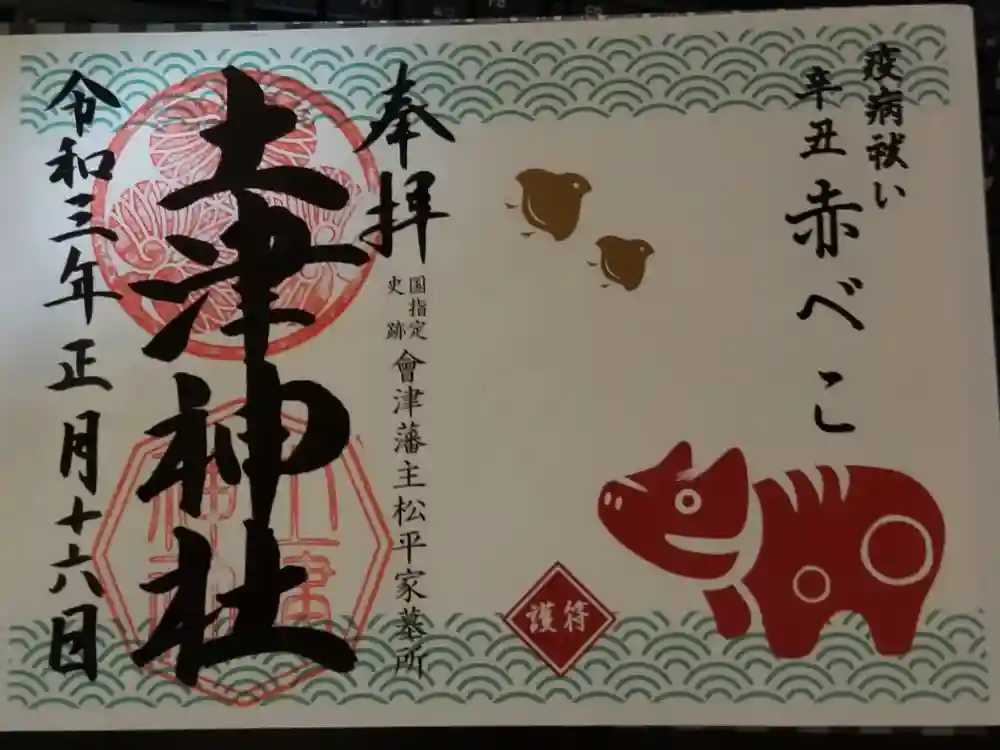 疫病祓い
辛丑
赤べこ
護符
奉拝
国指定
史跡
會津藩主松平家墓所
土津神社
令和三年正月十六日